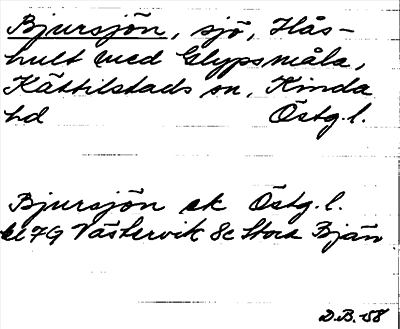 Bjursjön, sjö, Hås-
hult med Glypsmåla,
Kättilstads sn, Kinda
hd Östg.l.
Bjursjön ek Östg.l.
bl 7G Västervik 8c Stora Bjän
D.B. -58